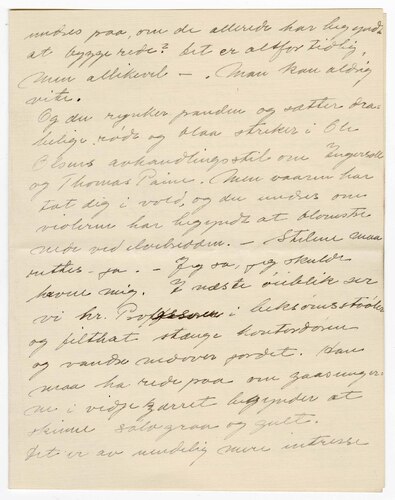 undres paa, om de allerede har begyndt
at bygge rede? Det er altfor tidlig,
Men allikevel —. Man kan aldrig
vite.
Og du rynker panden og sætter dra-
belige røde og blaa streker i Ole
Olsens avhandlingsstil om Ingersoll
og Thomas Paine. Men vaaren har
tat dig i vold, og du undres om
violerne har begyndt at blomstre
nede ved elvebredden. — Stilene maa
rettes — ja. — Jeg sa, jeg skulde
hevne mig. I næste øieblik ser
vi hr. Professoren i beksømsstøvler
og filthat stænge kontordøren
og vandre nedover jordet. Han
maa ha rede paa om gaasunger-
ne i vidjekjarret begynder at
skinne sølvgraa og gult.
Det er av uendelig mere intresse